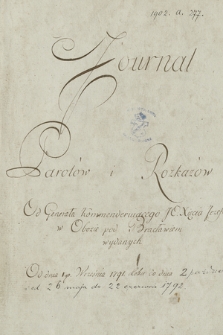 1902. a. 277.
Journal
Parolów i Rozkazów
Od Generała Kommenderuiącego JO. Xięcia Józefa
w Obozie pod Bracławiem
wydanych
Od dnia 1go Września 1791 do dnia 2 paździer
i od 26 maja do 22 czerwca 1792